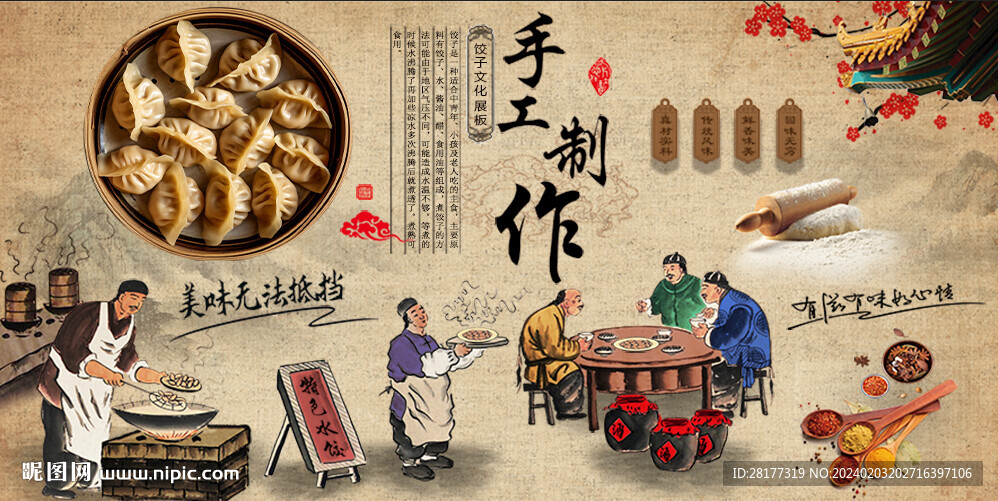 手工制作
饺子文化展板
饺子是一种适合中青年、小孩及老人吃的主食，主要原
料有饺子、水、酱油、醋、食用油等组成，煮饺子的方
法可能由于地区气压不同，可能造成水温不够，等煮的
时候水沸腾了再加些凉水多次沸腾后就煮透了，煮熟可
食用。
真材实料
传统风味
鲜香味美
回味无穷
美味无法抵挡
有滋有味好心情
特色水饺
酒
酒
酒
昵图网 www.nipic.com
ID:28177319 NO:20240203202716397106